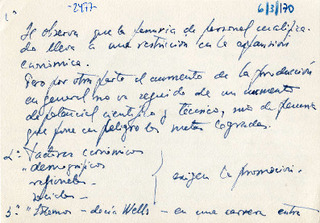 -2477-
6/3/170
1º
Se observa que la penuria de personal cualifica-
do lleva a una restricción en la expansión
económica.
Pero por otra parte el aumento de la producción
en general no va seguido de un aumento
de potencial científico y técnico, sino de penuria
que pone en peligro las metas logradas.
2º Factores económicos
" demográficos
regionales
sociales
exigen la promoción.
3º- "Estamos - decía Wells - en una carrera entre